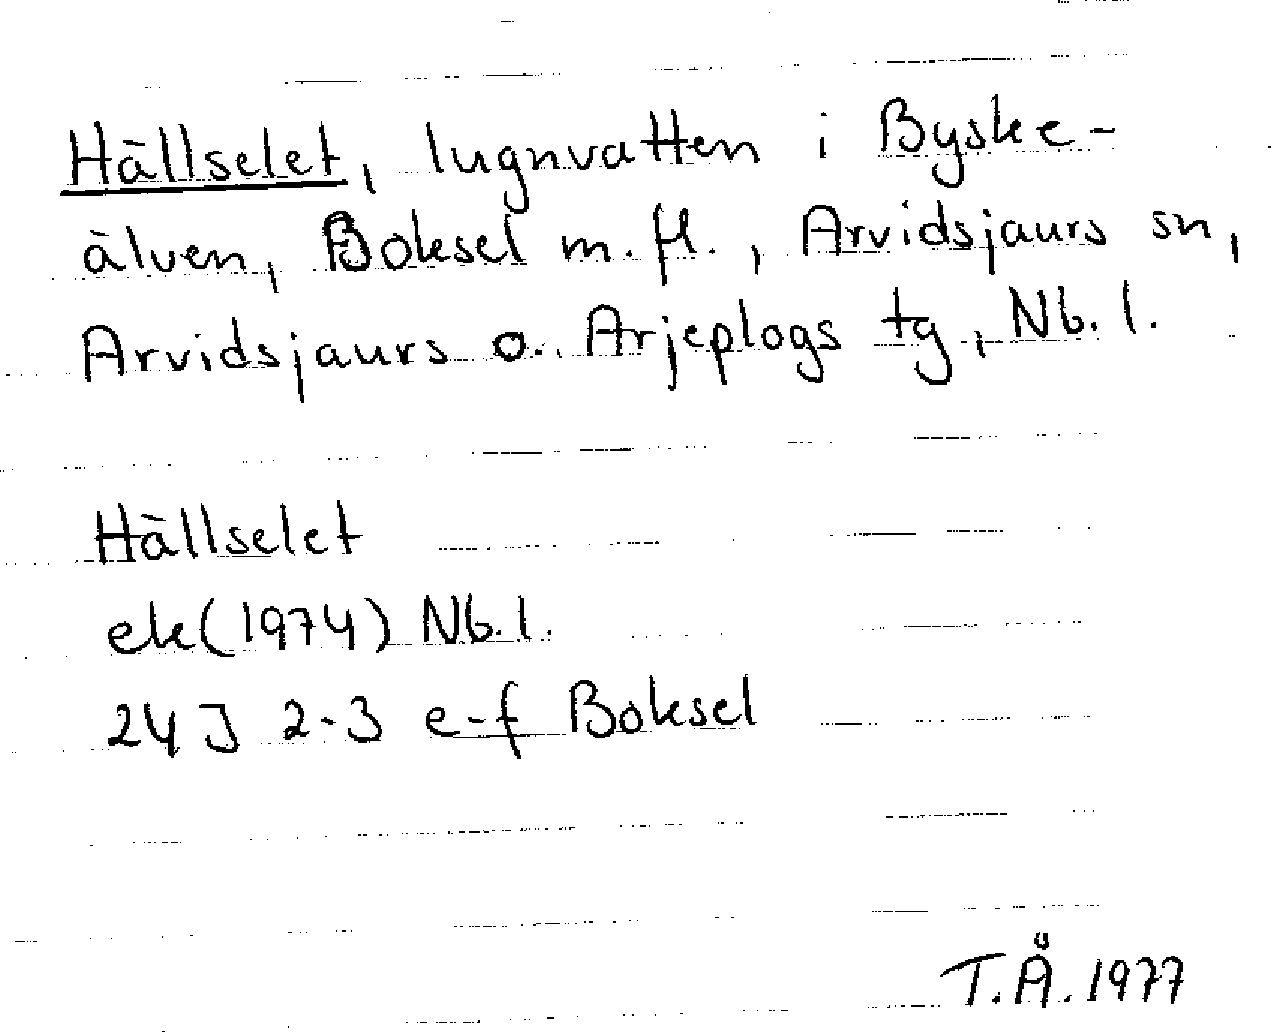 Hällselet, lugnvatten i Byske-
älven, Boksel m.fl., Arvidsjaurs sn,
Arvidsjaurs o. Arjeplogs tg, Nb. l.
Hällselet
ek(1974) Nb.l.
24J 2-3 e-f Boksel
T.Å.1977